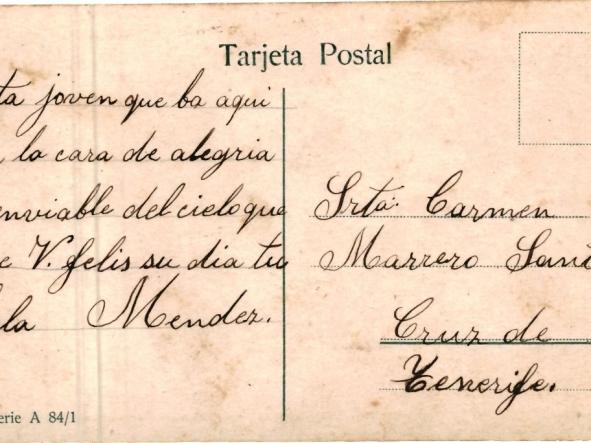 Tarjeta Postal
ta joven que ba aqui
la cara de alegria
enviable del cielo que
e V. felis su dia tu
la Mendez.
Srta. Carmen
Marrero Sant
Cruz de
Tenerife.
erie A 84/1